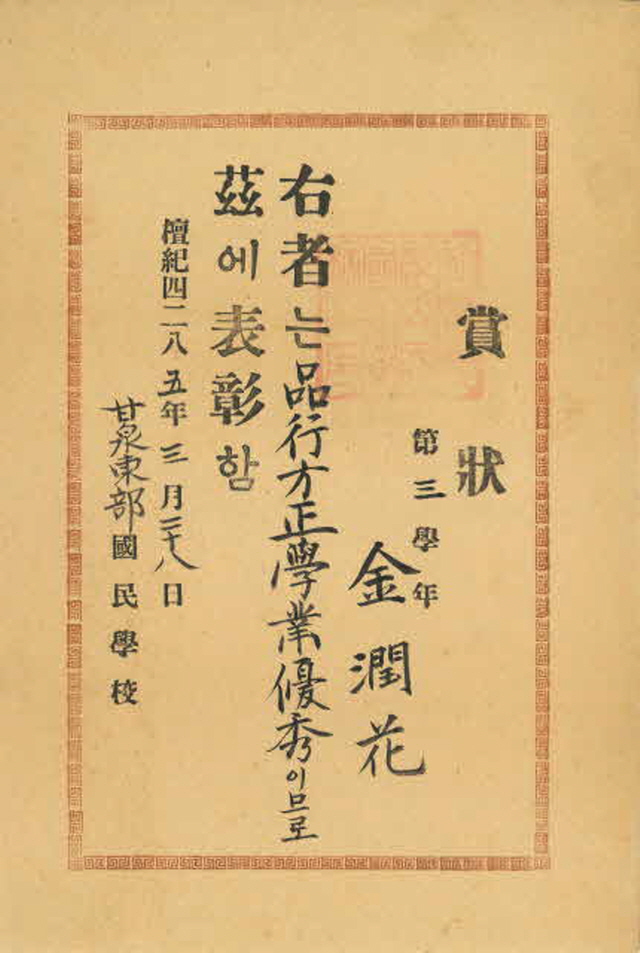 賞狀
第三學年
金潤花
右者는品行方正學業優秀이므로
玆에表彰함
檀紀四二八五年三月二十八日
甘泉東部國民學校